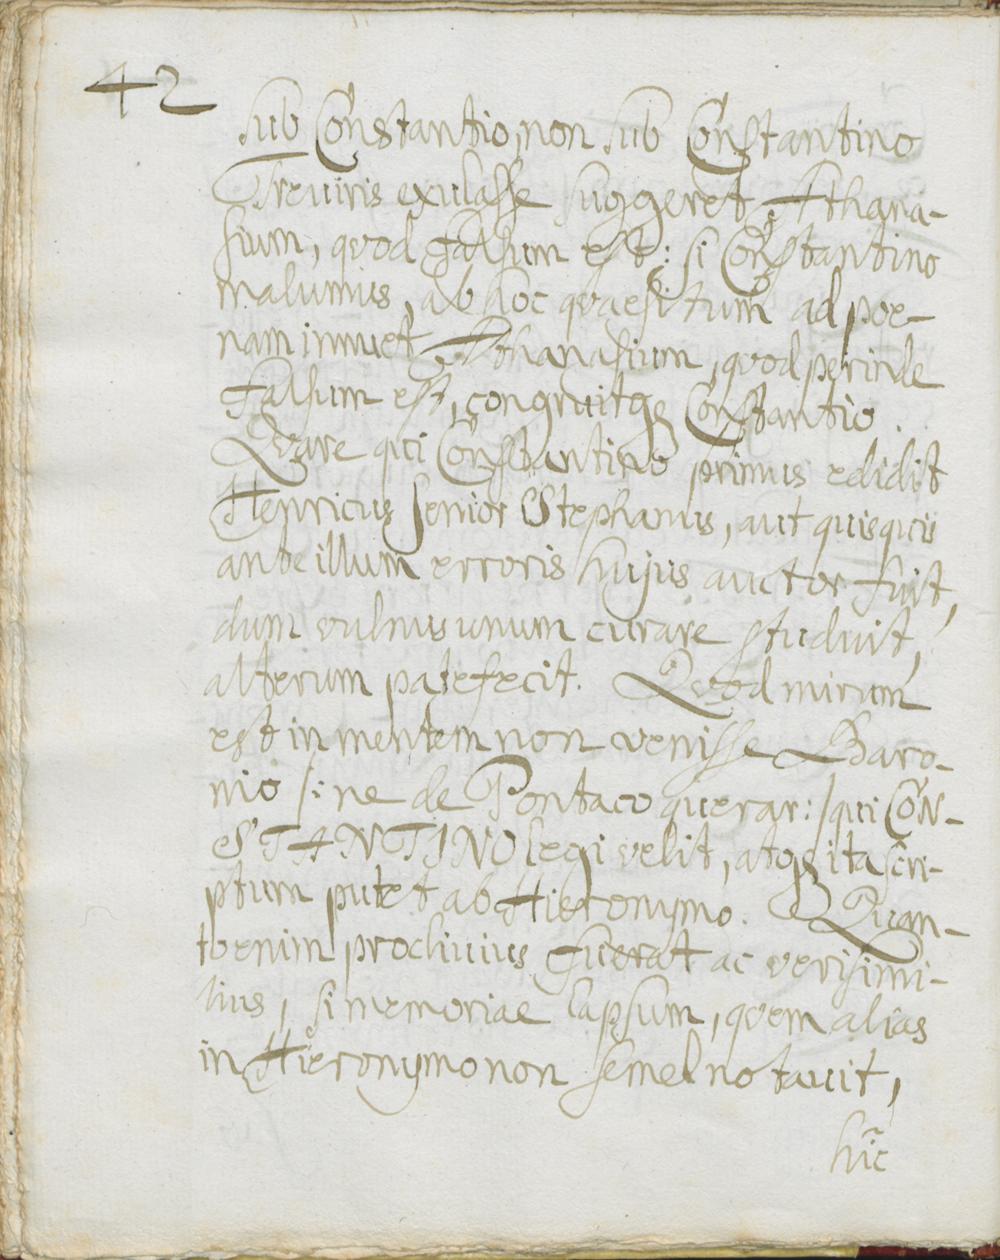 42
sub Constantio, non sub Constantino
Treuiris exulasse suggeret Athana-
sium, quod falsum est: si Constantino
malumus, ab hoc quaesitum ad poe-
nam innuet Athanasium, quod perinde
falsum est, congruitq; Constantio.
Quare qui Constantino primus edidit
Henricus senior Stephanus, aut quisquis
ante illum erroris hujus auctor fuit,
dum vulnus unum curare studuit,
alterum patefecit. Quod mirum
est in mentem non venisse Baro-
nio /: ne de Pontaco querar: / qui CON-
STANTINO legi velit, atq; ita scri-
ptum putet ab Hieronymo. Quan-
to enim procliuius fuerat ac verisimi-
lius, si memoriae lapsum, quem alias
in Hieronymo non semel notauit,
hic